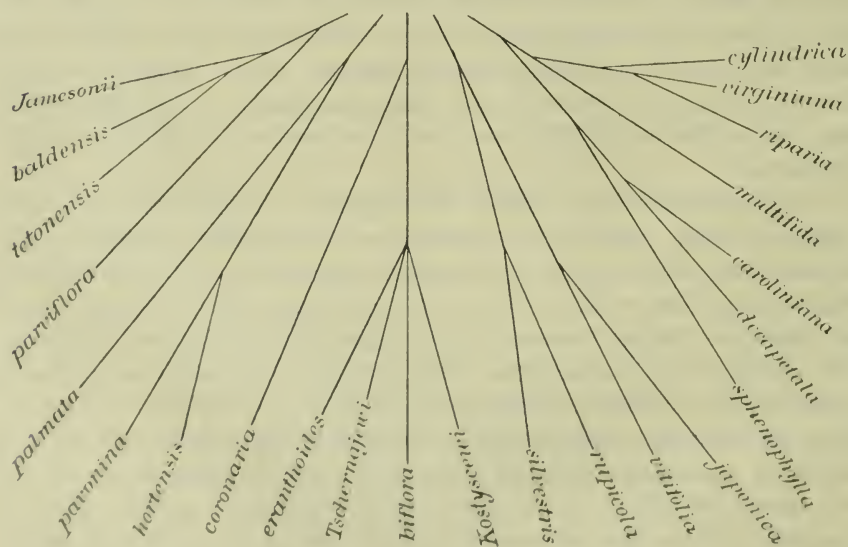 Jamesonii
baldensis
tetonensis
parviflora
palmata
pavonina
hortensis
coronaria
eranthoides
Tschernajewi
biflora
Kostyscewi
silvestris
rupicola
vitifolia
japonica
sphenophylla
decapetala
caroliniana
multifida
riparia
virginiana
cylindrica